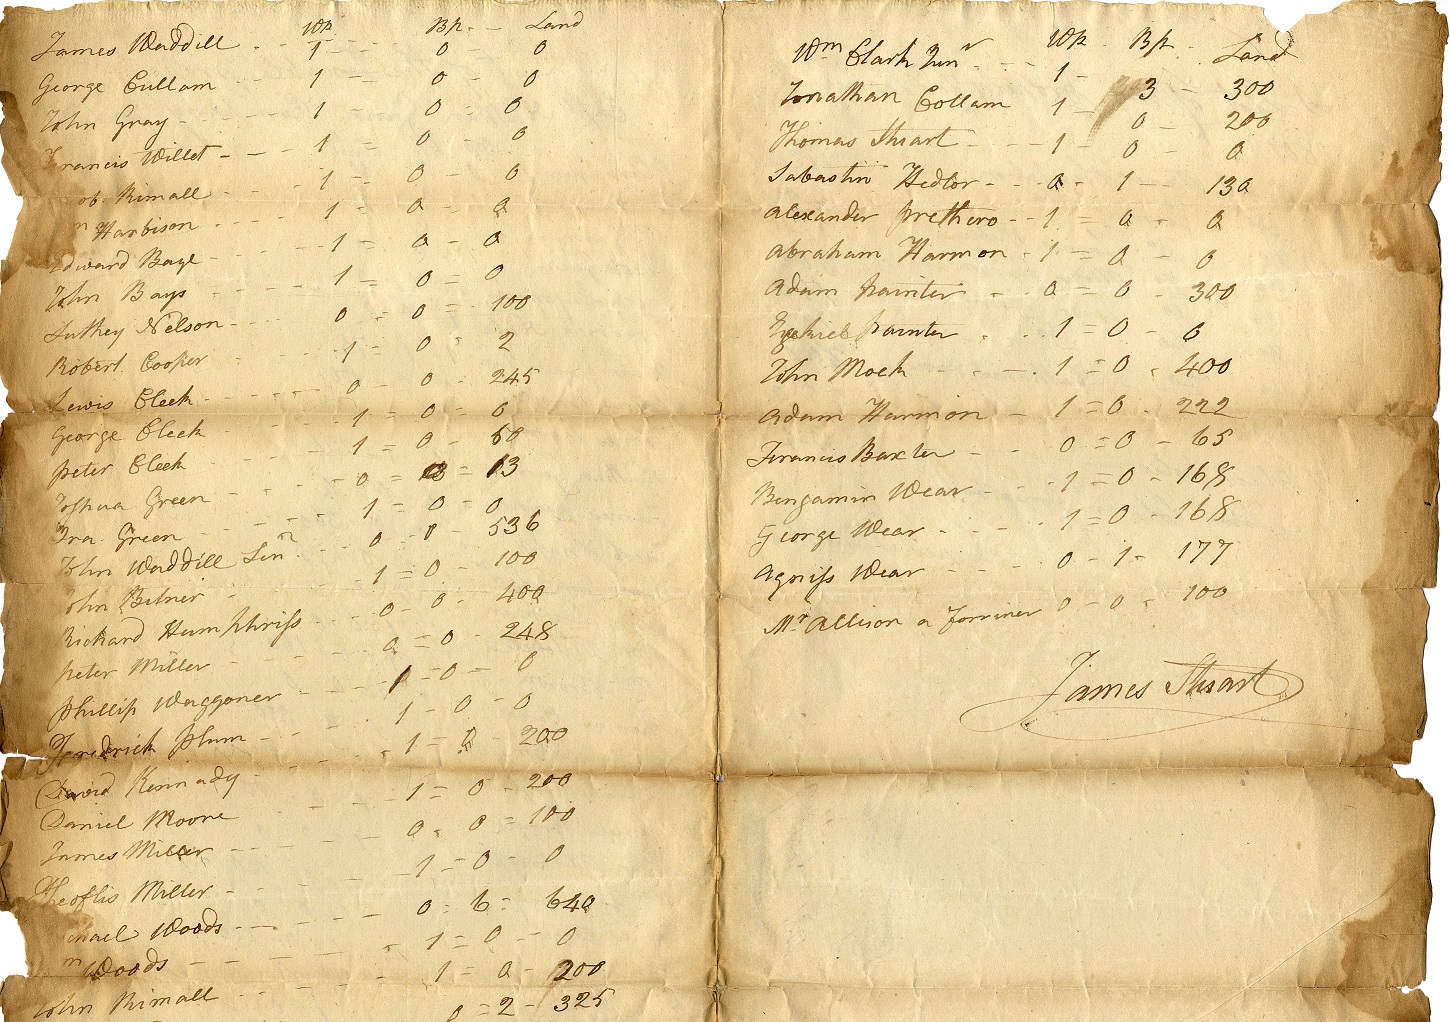 Wp Bp - Land
James Waddill - 1 - 0 - 0
George Cullam - 1 - 0 - 0
John Gray - 1 = 0 = 0
Francis Willet - 1 = 0 - 0
ob Rimall - 1 = 0 - 0
m Harbison - 1 = 0 - 0
Edward Baye - 1 = 0 - 0
John Bays - 1 = 0 = 0
Suthey Nelson - 0 = 0 = 100
Robert Cooper - 1 = 0 - 2
Lewis Cleek - 0 - 0 - 245
George Cleek - 1 = 0 = 0
Peter Cleek - 1 = 0 - 50
Joshua Green - 0 = 0 = 13
Ira Green - 1 = 0 - 0
John Waddill Senr - 0 1 - 536
John Bitner - 1 = 0 - 100
Richard Humphriss - 0 - 0 - 400
Peter Miller - 0 = 0 - 248
Phillip Waggoner - 1 - 0 - 0
Frederick Plum - 1 - 0 - 0
David Kennady - 1 = 0 - 200
Daniel Moore - 1 = 0 - 200
James Miller - 0 - 0 = 100
Theoflis Miller - 1 = 0 - 0
Woods - 0 = 6 = 640
m Woods - 1 = 0 - 0
John Rimall - 1 = 0 - 200
0 = 2 - 325
Wp - Bp - Land
Wm Clark Junr - 1 - 3 - 300
Jonathan Collam 1 - 0 - 200
Thomas Stuart - 1 - 0 - 0
Sabastin Hedlor - 0 - 1 - 130
Alexander Prethero - 1 = 0 - 0
Abraham Harmon - 1 = 0 - 0
Adam Painter - 0 = 0 - 300
Ezekiel Painter - 1 = 0 - 0
John Mock - 1 = 0 - 400
Adam Harmon - 1 = 0 - 222
Francis Baxter - 0 = 0 - 65
Bengamin Wear - 1 = 0 - 168
George Wear - 1 = 0 - 168
Agniss Wear - 0 - 1 - 177
Mr Allison a forriner 0 - 0 - 100
James Stuart